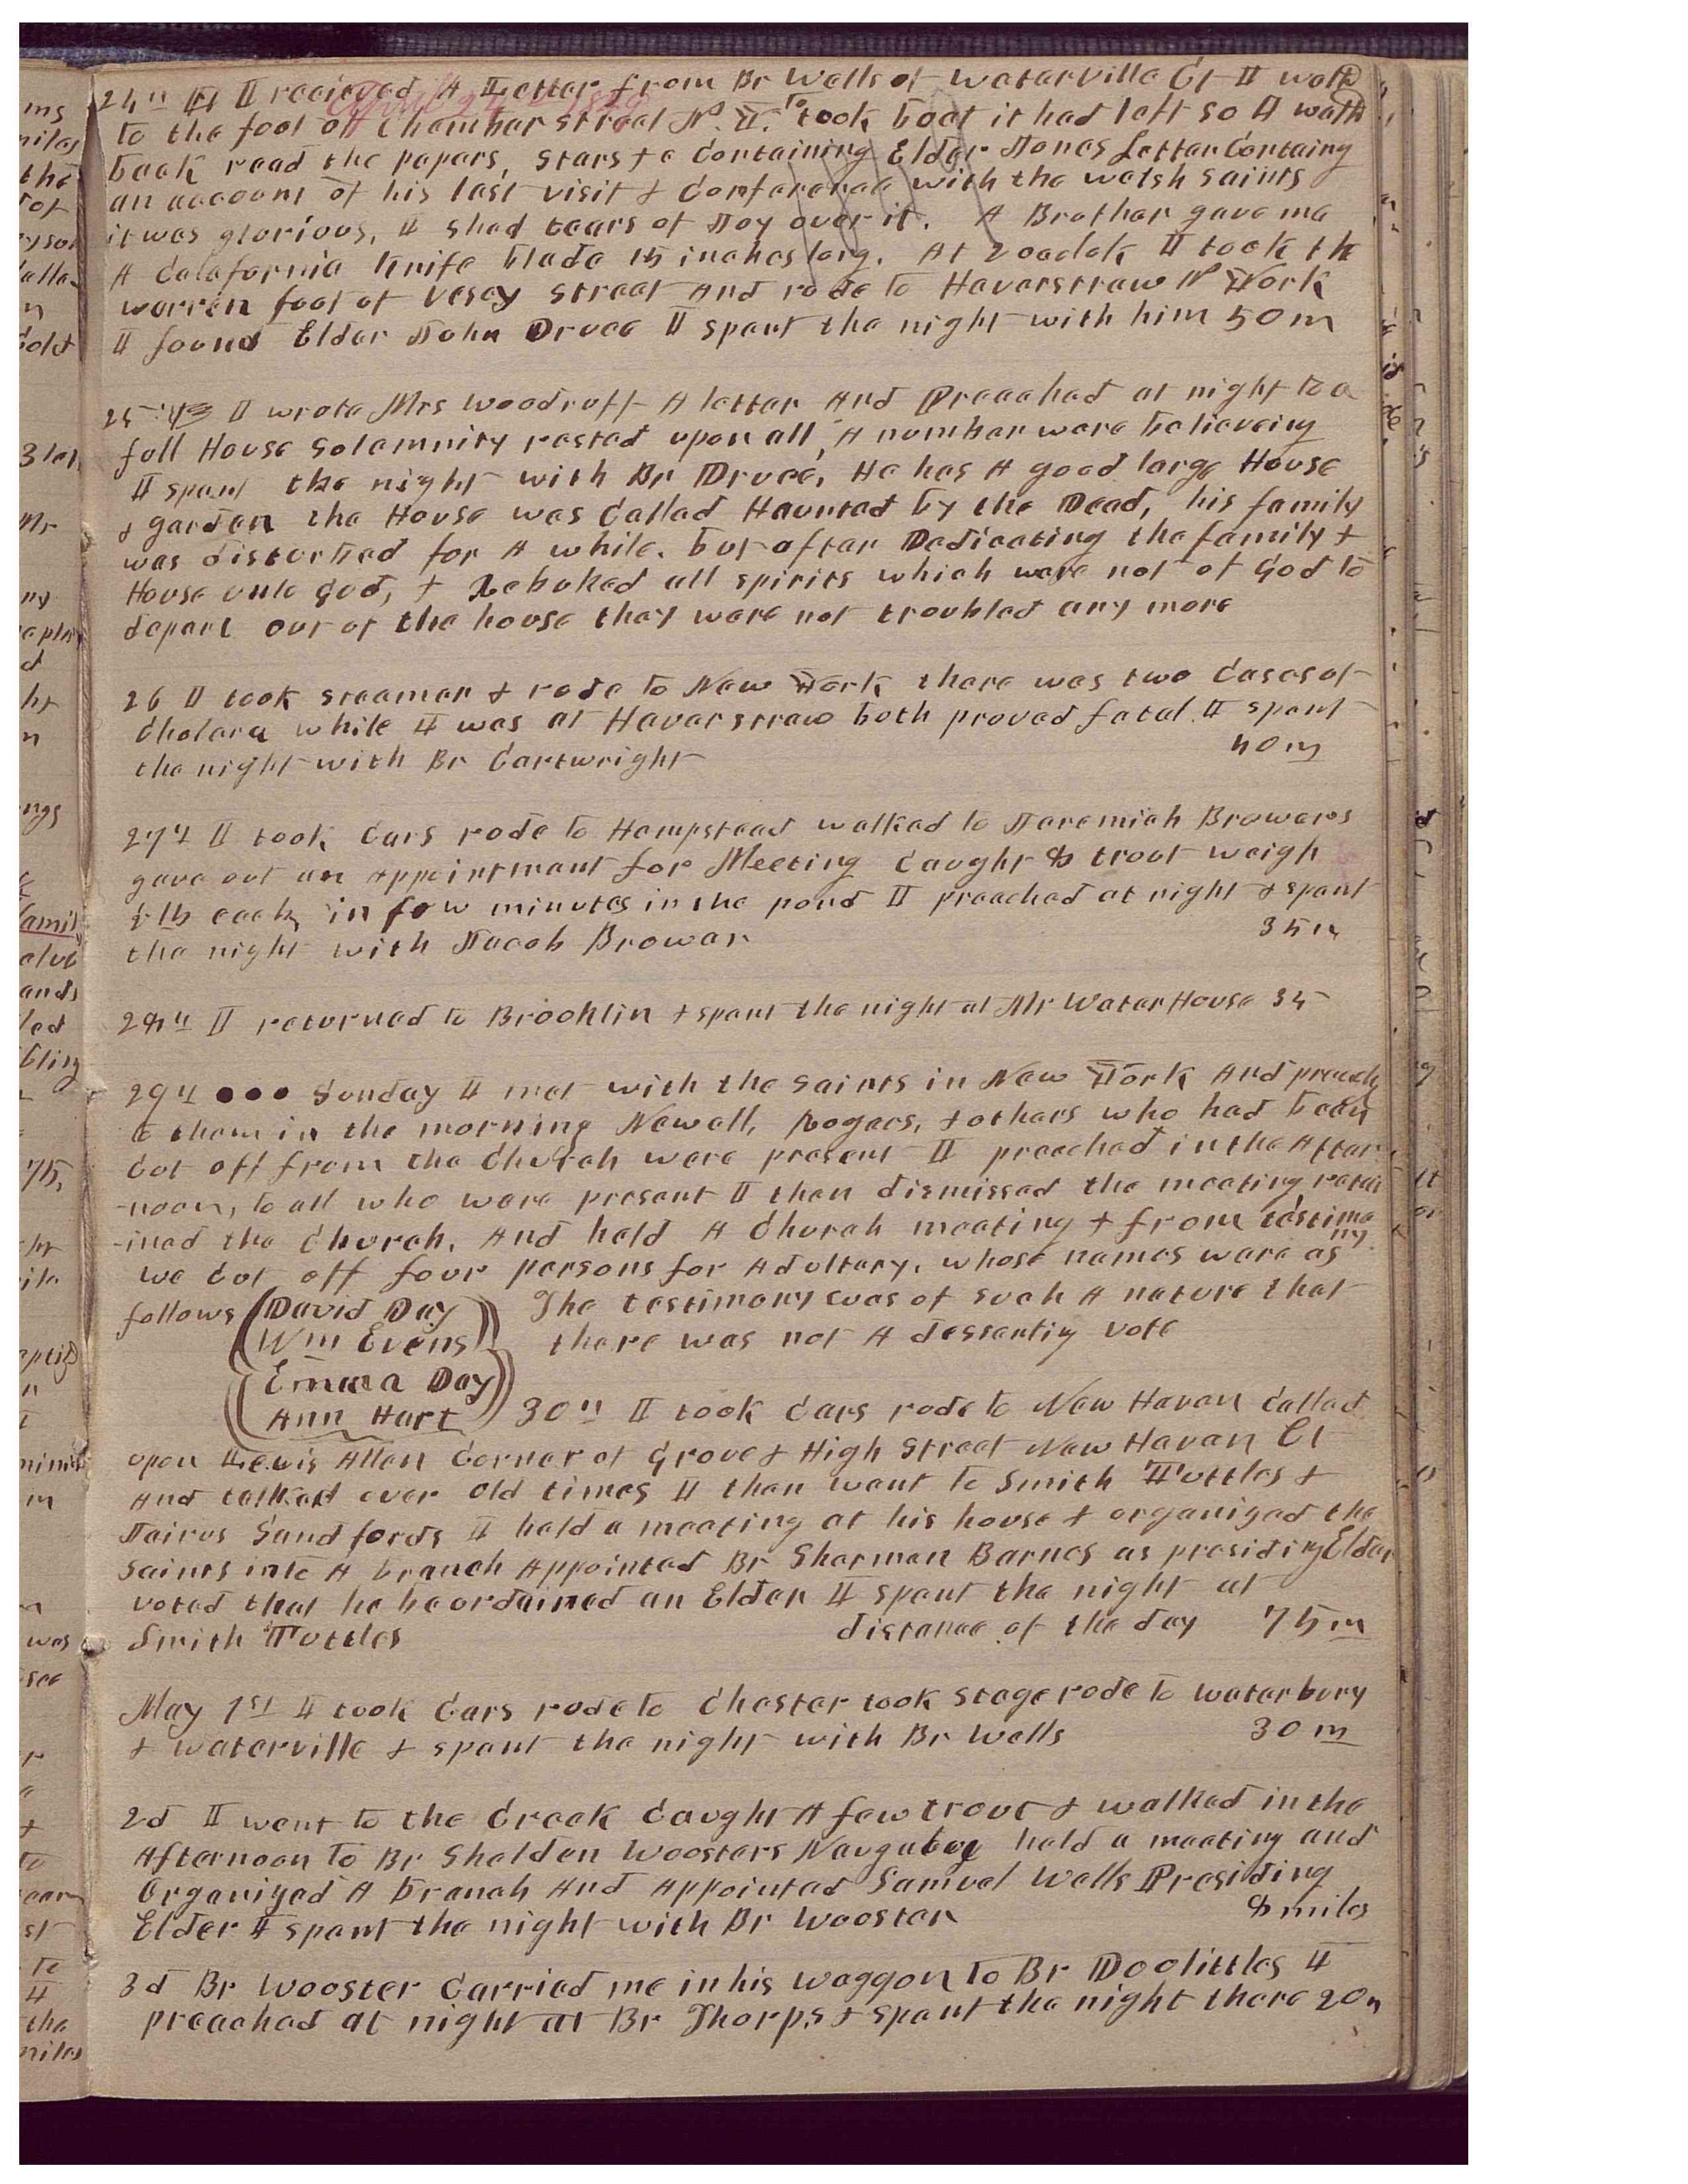 24th I recieved A Letter from Br Wells of Waterville Ct I walk
to the foot of Chamber Street N.Y. to took boat it had left so I walk
back read the papers, Stars &c Containing Elder Jones Letter Containg
an account of his last visit & Conference with the welsh Saints
it was glorious, I shed tears of Joy over it. A Brother gave me
A Calafornia Knife blade 15 inches long. At 2 oclok I took the
warren foot of Vesey Street And rode to Haverstraw N York
I found Elder John Druce I spent the night with him 50 m
25 I wrote Mrs Woodruff A letter And Preached at night to a
full House Solemnity rested upon all, A number were believeing
I spent the night with Br Druce, He has A good large House
& garden the House was Called Haunted by the Dead, his family
was disturbed for A while. but after Dedicating the family &
House unto God, & Rebuked all spirits which were not of God to
depart out of the house they were not troubled any more
26 I took steamer & rode to New York there was two Cases of
Cholera while I was at Haverstraw both proved fatal. I spent
the night with Br Cartwright 40 m
27th I took Cars rode to Hempstead walked to Jeremiah Browers
gave out an Appointment for Meeting Caught 8 trout weigh
½ lb each in few minutes in the pond I preached at night & spent
the night with Jacob Brower 35 m
28th I returned to Brooklin & spent the night at Mr Water House 35
29th ●●● Sunday I met with the Saints in New York And preach
to them in the morning Newell, Rogers, & others who had been
Cut off from the Church were present I preached in the After
-noon, to all who were present I then dismissed the meeting, reta
-ined the Church, And held A Church meeting & from testimo
ny
we Cut off four persons for Adultery, whose names were as
follows (David Day The testimony was of such A nature that
Wm Evens there was not A dessentig vote
Emma Day
Ann Hart 30th I took Cars rode to New Haven Called
upon Lewis Allen Corner of Grove & High Street New Haven Ct
And talked over old times I then went to Smith Tuttles &
Jairus Sandfords I held a meeting at his house & organized the
Saints into A branch Appointed Br Sherman Barnes as presiding Elder
voted that he be ordained an Elder I spent the night at
Smith Tuttles distance of the day 75 m
May 1st I took Cars rode to Chester took stage rode to waterbury
& waterville & spent the night with Br Wells 30 m
2d I went to the Creek Caught A few trout & walked in the
Afternoon to Br Sheldon Woosters Naugubey held a meeting and
Organized A branch And Appointed Samuel Wells Presiding
Elder I spent the night with Br Wooster 8 miles
3d Br Wooster Carried me in his waggon to Br Doolittles I
preached at night at Br Thorps & spent the night there 20 m